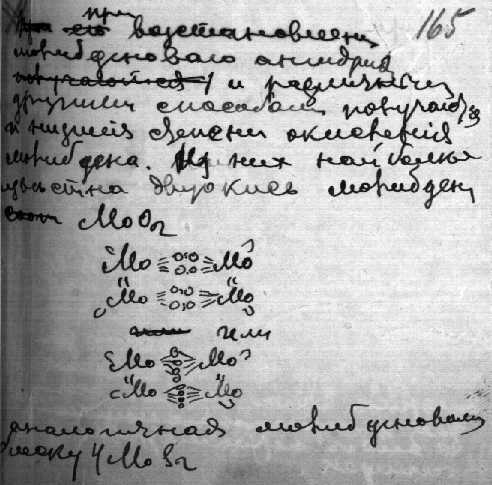 165
при
возстановлении
молибденоваго ангидрида
и различными
другими способами получаются
и низшія степени окисленія
молибдена. Из них наиболее
известна двуокись молибдена
MoO₂
Mo Mo
Mo Mo
или
Mo Mo
Mo Mo
аналогичная молибденовому
блеску MoS₂